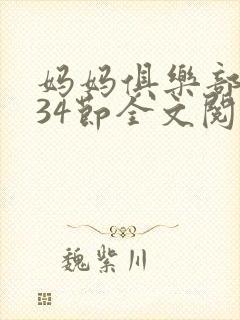 妈妈俱樂部
34節全文閱
魏紫川